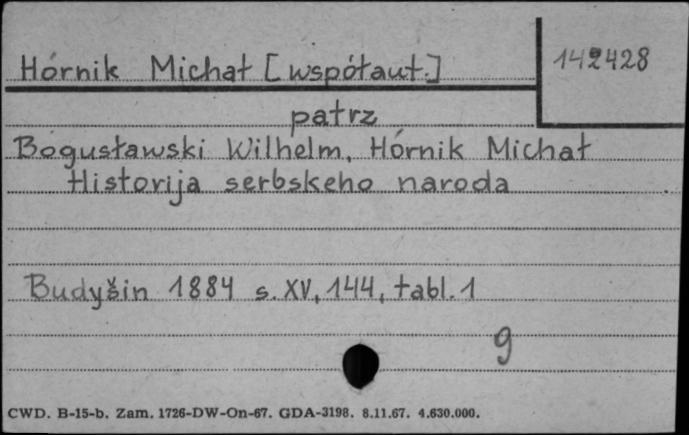 Hórnik Michał [współaut.]
142428
patrz
Bogusławski Wilhelm, Hórnik Michał
Historija serbskeho naroda
Budyšin 1884 s. XV, 144, tabl. 1
g
CWD. B-15-b. Zam. 1726-DW-On-67. GDA-3198. 8.11.67. 4.630.000.